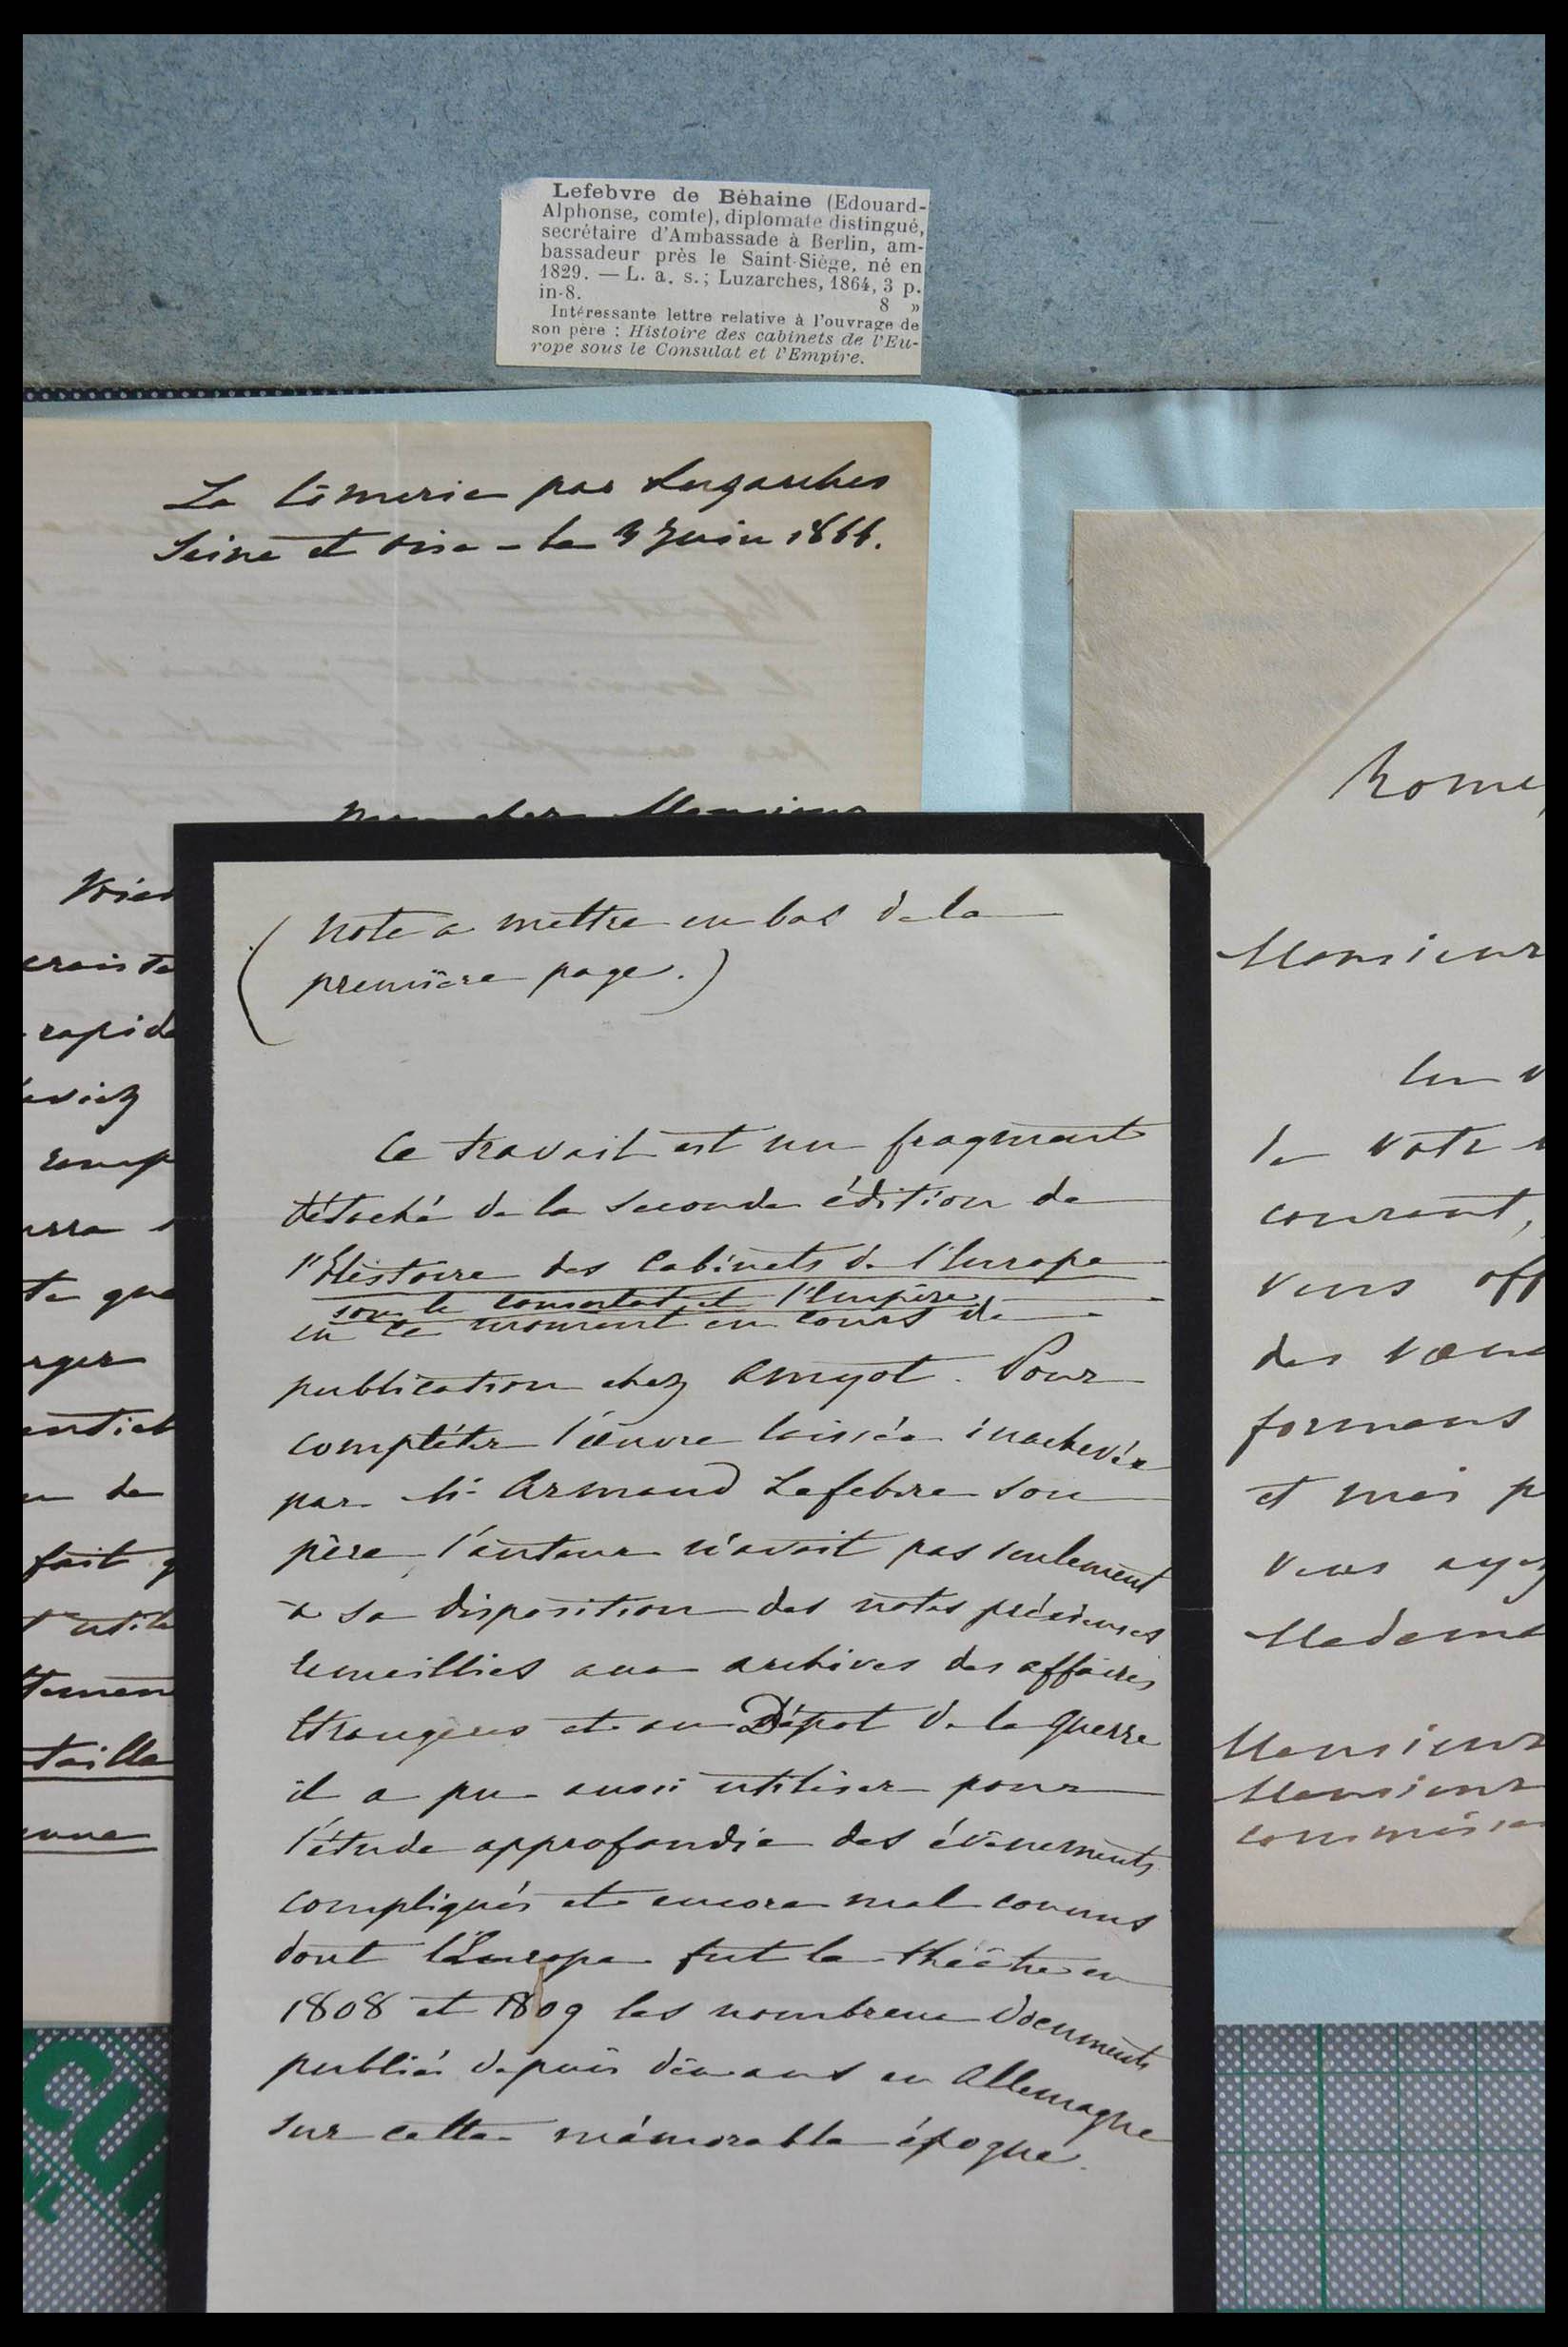 Lefebvre de Béhaine (Edouard-
Alphonse, comte), diplomate distingué,
secrétaire d'Ambassade à Berlin, am-
bassadeur près le Saint-Siège, né en
1829. — L. a. s.; Luzarches, 1864, 3 p.
in-8. 8 »
Intéressante lettre relative à l'ouvrage de
son père : Histoire des cabinets de l'Eu-
rope sous le Consulat et l'Empire.
La par Luzarches
Seine et Oise - le 3 Juin 1864.
Mon cher Monsieur
rapide
te que
de
fait
(Note a mettre en bas de la
première page.)
Ce travail est un fragment
détaché de la seconde édition de
l'Histoire des Cabinets de l'Europe
sous le consulat et l'Empire,
en ce moment en cours de
publication chez Amyot. Pour
compléter l'œuvre laissée inachevée
par Mr Armand Lefebvre son
père, l'auteur n'avait pas seulement
à sa disposition des notes précieuses
recueillies aux archives des affaires
Etrangères et au Dépot de la Guerre
il a pu aussi utiliser pour
l'étude approfondie des évènements
compliqués et encore mal connus
dont l'Europe fut le théâtre en
1808 et 1809 les nombreux Documents
publiés depuis dix ans en Allemagne
sur cette mémorable époque.
Rome,
Monsieur
de votre
courant,
vous off
des vœux
formons
et moi p
vous ayez
Madame
Monsieur
Monsieur